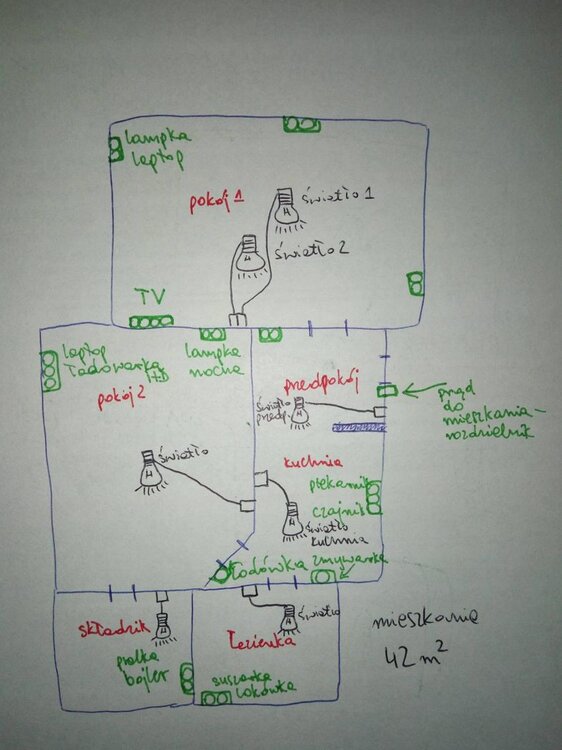 lampka
laptop
pokój 1
światło 1
światło 2
TV
laptop
ładowarka
itd
pokój 2
lampka
nocna
przedpokój
światło
przedp.
prąd
do
mieszkania -
rozdzielnik
światło
kuchnia
piekarnik
czajnik
światło
kuchnia
lodówka
zmywarka
składzik
pralka
bojler
światło
łazienka
suszarka
lokówka
mieszkanie
42 m²